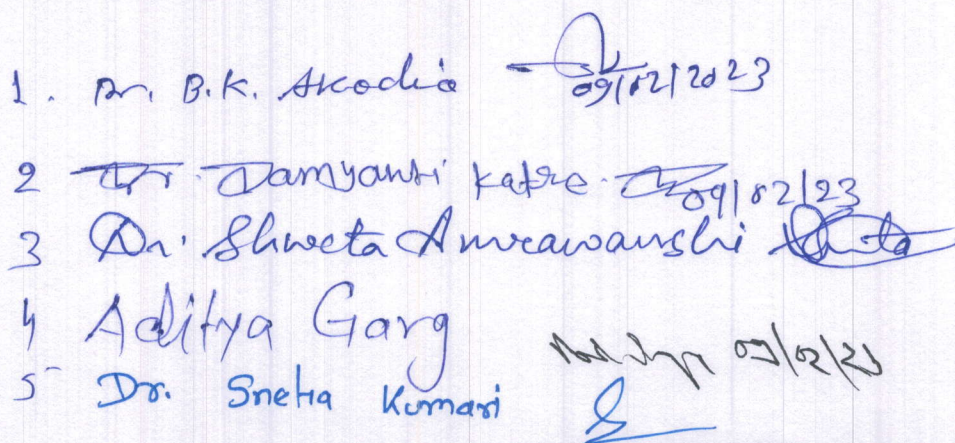 1. Dr. B.K. Akodia 09/02/2023
2 Dr. Damyanti Katre 09/02/23
3 Dr. Shweta Amrawanshi
4 Aditya Garg
09/02/23
5 Dr. Sneha Kumari